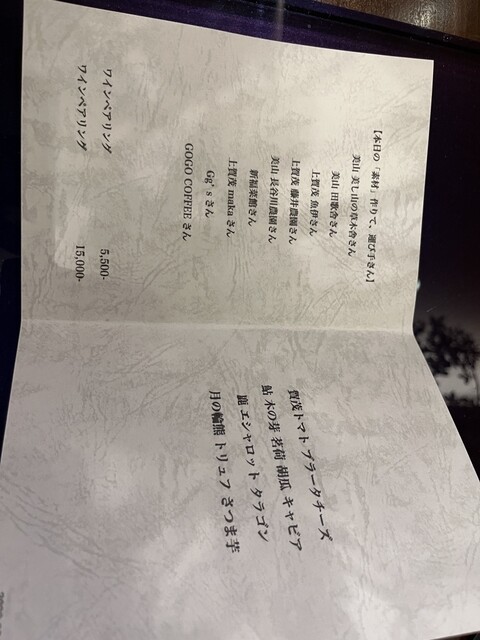 【本日の「素材」作りて、運び手さん】
美山 美し山の草木舎さん
美山 田歌舎さん
上賀茂 魚伊さん
上賀茂 藤井農園さん
美山 長谷川農園さん
新福菜館さん
上賀茂 makaさん
Gg's さん
GOGO COFFEE さん
ワインペアリング 5,500-
ワインペアリング 15,000-
賀茂トマト ブラータチーズ
鮎 木の芽 茗荷 胡瓜 キャビア
鹿 エシャロット タラゴン
月の輪熊 トリュフ さつま芋